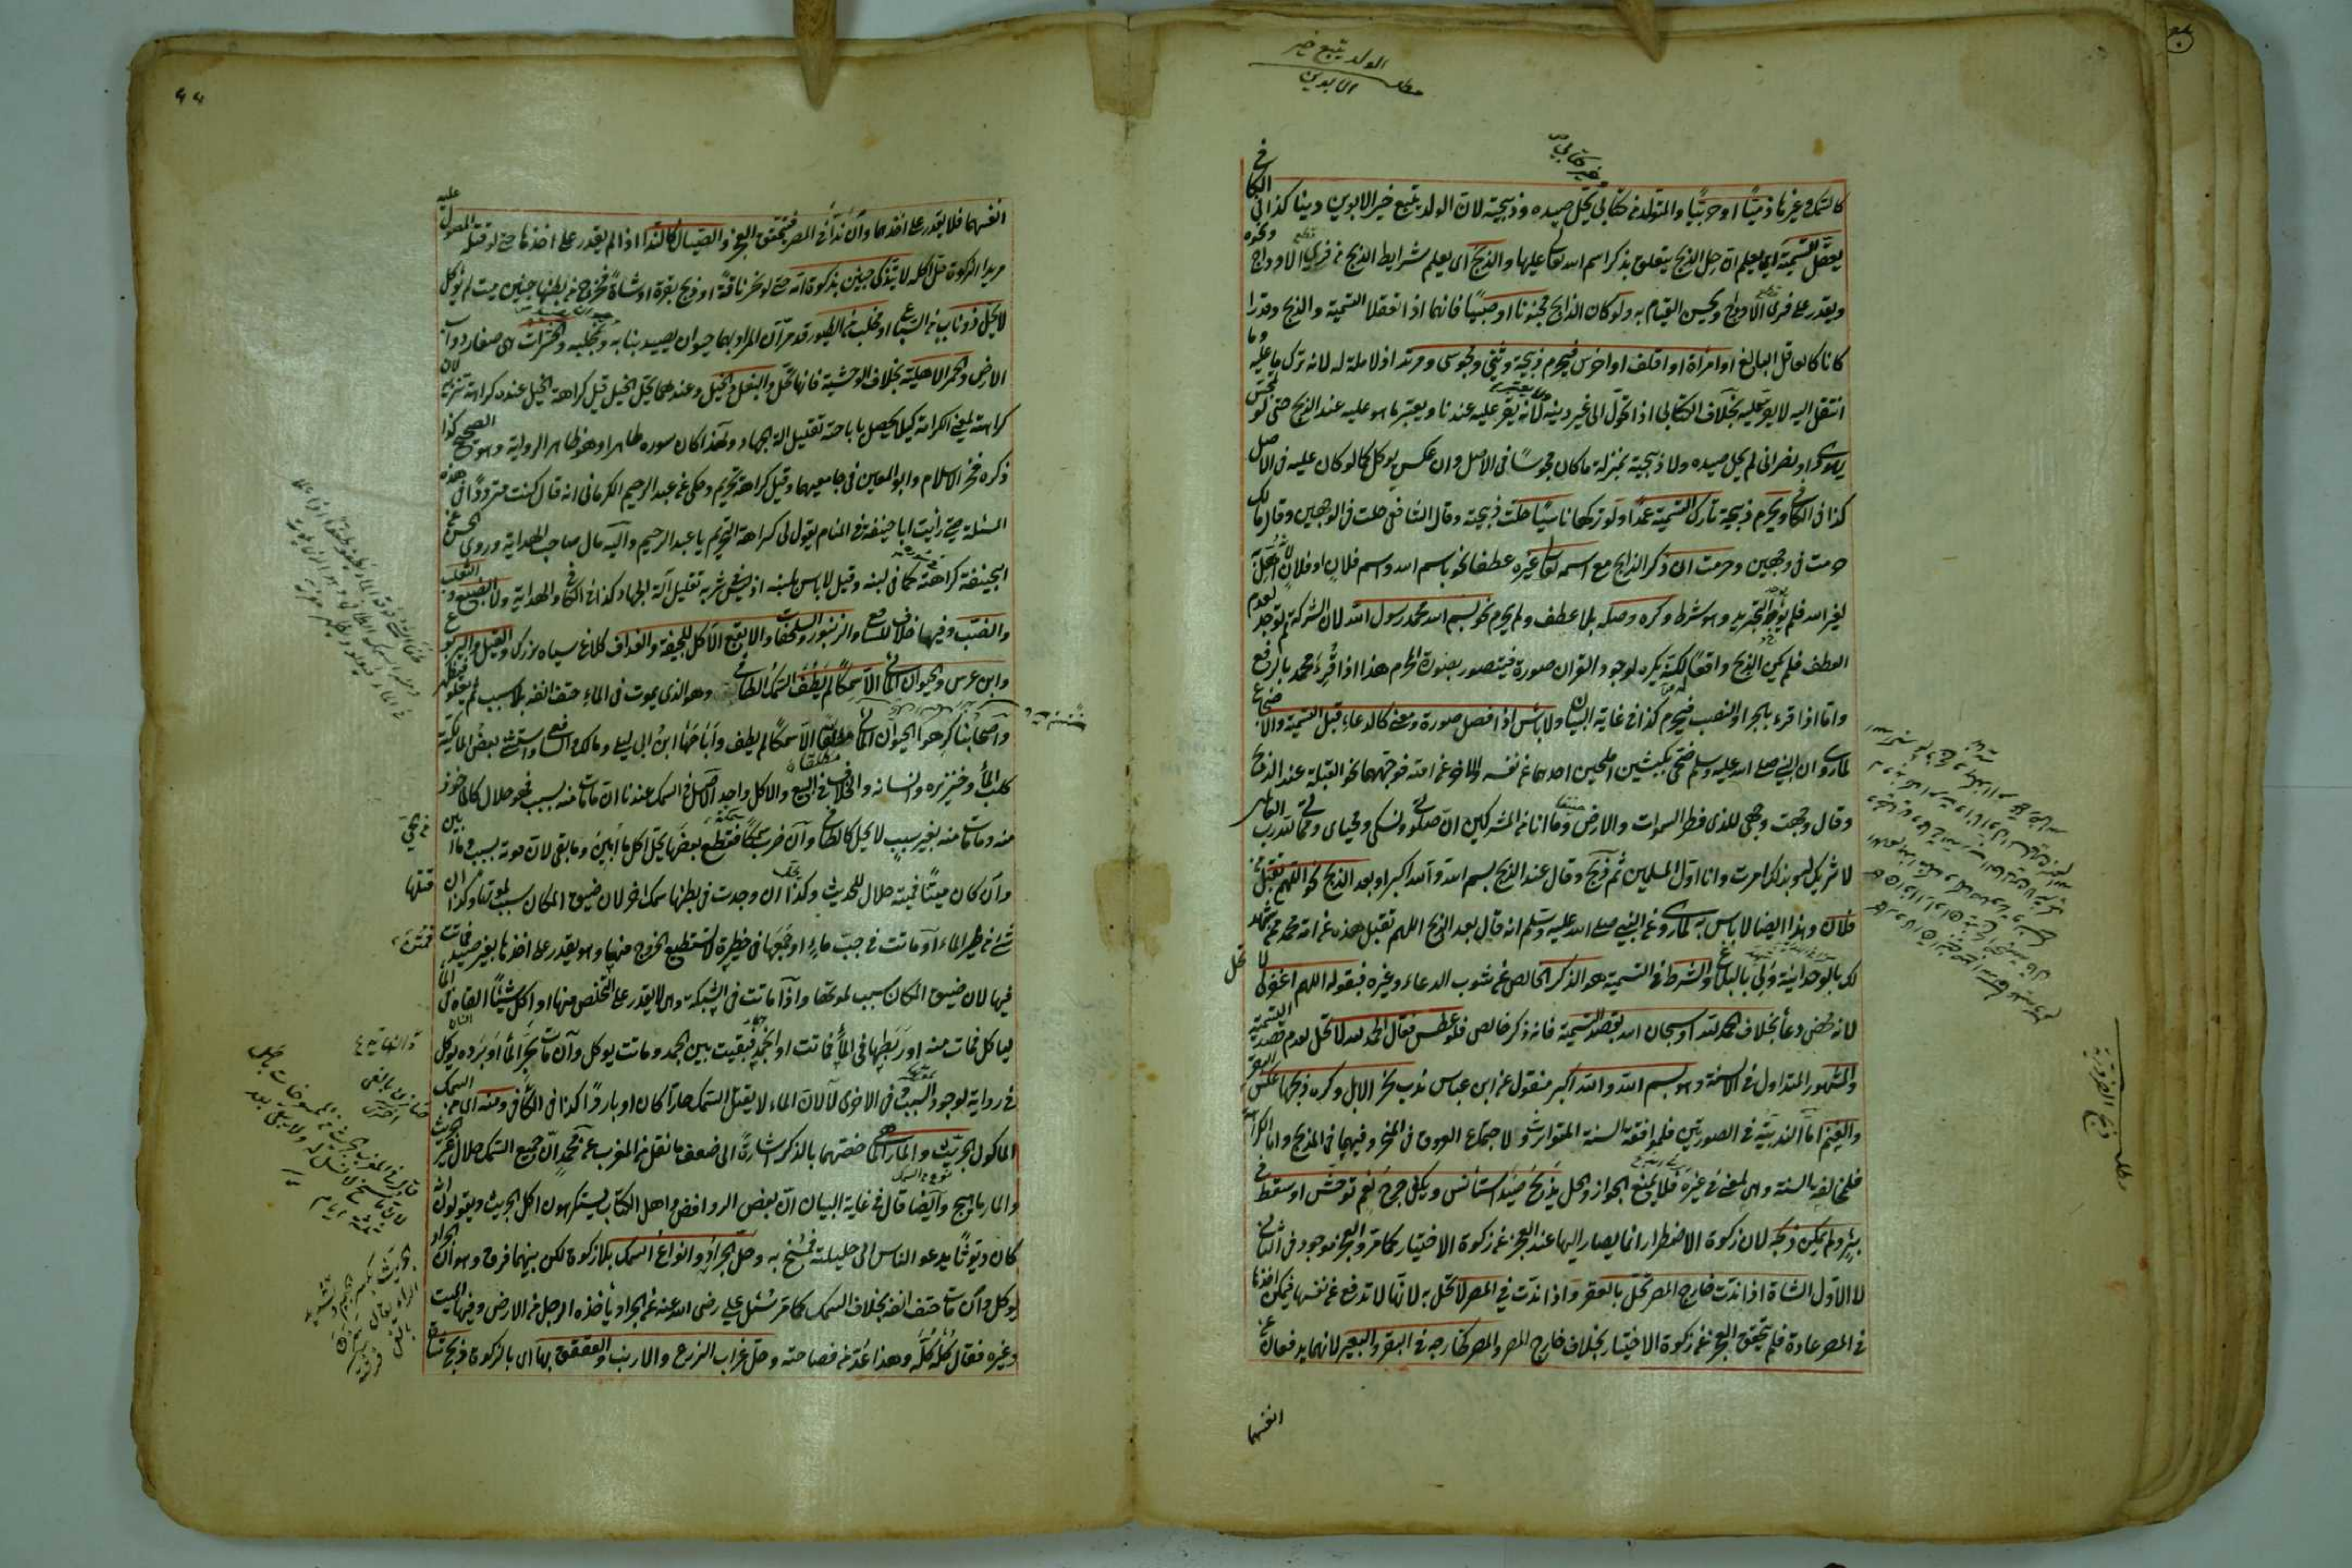 الولد يتبع خير
الابوين
كالسمك وغيرها ذميا او حربيا والمتولد من كتابي يحل صيده وذبيحته لان الولد يتبع خير الابوين دينا كذا في الكافي
يعقل التسمية اي يعلم ان حل الذبح يتعلق بذكر اسم الله تعالى عليها والذبح اى يعلم شرايط الذبح من فرى الاوداج ونحوه
ويقدر على فرى الاوداج ويحسن القيام به ولو كان الذابح مجنونا او صبيا فانهما اذا تعقلا التسمية والذبح وقدرا
كانا كالعاقل البالغ او امراة او اقلف او اخرس فيحرم ذبيحة وثني ومجوسى ومرتد اذ لا ملة له لانه ترك ما عليه وما
انتقل اليه لا يقر عليه بخلاف الكتابى اذا تحول الى غير دينه لانه يقر عليه عندنا ويعتبر ما هو عليه عند الذبح حتى لو تمجس
يهودى او نصرانى لم يحل صيده ولا ذبيحته بمنزلة ما كان مجوسيا فى الاصل وان عكس يوكل كما لو كان عليه فى الاصل
كذا فى الكافى ويحرم ذبيحة تارك التسمية عمدا ولو تركها ناسيا حلت ذبيحته وقال الشافعى حلت فى الوجهين وقال مالك
حرمت فى وجهين وحرمت ان ذكر الذابح مع اسمه تعالى غيره عطفا نحو باسم الله واسم فلان او فلان لانه اهل به
لغير الله فلم يوجد التجريد وهو شرط وكره وصله بلا عطف ولم يحرم نحو بسم الله محمد رسول الله لان الشركة لم توجد لعدم
العطف فلم يكن الذبح واقعا لكنه يكره لوجود القران صورة فيتصور بصورة الحرام هذا اذا قرئ محمد بالرفع
واما اذا قرء بالجر او النصب فيحرم كذا فى غاية البيان ولا باس اذا فصل صورة ومعنى كالدعاء قبل التسمية والاضجاع
لما روى ان النبي صلى الله عليه وسلم ضحى بكبشين املحين احدهما عن نفسه والاخر عن امته فوجههما نحو القبلة عند الذبح
وقال وجهت وجهي للذى فطر السموات والارض حنيفا وما انا من المشركين ان صلوتى ونسكى ومحياى ومماتى لله رب العالمين
لا شريك له وبذلك امرت وانا اول المسلمين ثم ذبح وقال عند الذبح بسم الله والله اكبر او بعد الذبح نحو اللهم تقبل عن
فلان وهذا ايضا لاباس به لما روى عن النبي صلى الله عليه وسلم انه قال بعد الذبح اللهم تقبل هذه عن امة محمد ممن شهد
لك بالوحدانية ولى بالبلاغ والشرط فى التسمية هو الذكر الخالص عن شوب الدعاء وغيره فبقوله اللهم اغفر لى لا تحل
لانه محض دعاء بخلاف الحمد لله او سبحان الله بقصد التسمية فانه ذكر خالص فلو عطس فقال الحمد لله لا تحل لعدم قصد التسمية
والمشهور المتداول فى الالسنة وهو بسم الله والله اكبر منقول عن ابن عباس ندب نحر الابل وكره ذبحها وعكس البقر
والغنم اما الندبية فى الصورتين فلموافقة السنة المتوارثة ولاجتماع العروق فى المنحر وفيهما فى المذبح واما الكراهة
فلمخالفة السنة وهى لمعنى فى غيره فلا يمنع الجواز والحل يذبح صيد استانس ويكفى جرح نعم توحش او سقط فى
بئر ولم يمكن ذبحه لان زكوة الاضطرار انما يصار اليها عند العجز عن زكوة الاختيار كما مر والعجز موجود فى الثانى
لا الاول الشاة اذا ندت خارج المصر تحل بالعقر واذا ندت فى المصر لا تحل به لانها لا تدفع عن نفسها فيمكن اخذها
فى المصر عادة فلم يتحقق العجز عن زكوة الاختيار بخلاف خارج المصر والمصر كخارجه فى البقر والبعير لانهما يدفعان عن
انفسهما
مطلب ذبح الضرورية
انفسهما فلا يقدر على اخذهما وان ندا فى المصر فيتحقق العجز والصيال كالندا اذا لم يقدر على اخذها حتى لو قتله المصول عليه
مريدا الزكوة حل اكله لا يتذكى جنين بذكوة امه حتى لو نحر ناقة او ذبح بقرة او شاة فخرج من بطنها جنين ميت لم يؤكل
لا يحل ذو ناب من السباع او مخلب من الطيور قد مر ان المراد بهما حيوان يصيد بنابه ومخلبه والحشرات هى صغار دواب
الارض والحمر الاهلية بخلاف الوحشية فانها تحل والبغل والخيل وعندهما يحل الخيل قيل كراهة الخيل عنده كراهة تنزيه لان
كراهته لمعنى الكرامة كيلا يحصل باباحته تقليل الة الجهاد ولهذا كان سوره طاهرا وهو ظاهر الرواية وهو الصحيح كذا
ذكره فخر الاسلام وابو المعين فى جامعيهما وقيل كراهة تحريم وحكى عن عبد الرحيم الكرمانى انه قال كنت مترددا فى هذه
المسئلة حتى رأيت ابا حنيفة فى المنام يقول لى كراهة التحريم يا عبد الرحيم واليه مال صاحب الهداية وروى الحسن عن
ابيحنيفة كراهة كما فى لبنه وقيل لاباس بلبنه اذ ليس فى شربه تقليل آلة الجهاد كذا فى الكافى والهداية ولا الضبع والثعلب
والضب وفيها خلاف الشافعى والزنبور والسلحفاة والابقع الآكل للجيفة والغداف كلاغ سياه بزرك والفيل واليربوع
وابن عرس والحيوان المائى الا سمكا لم يطف السمك الطافى وهو الذى يموت فى الماء حتف انفه بلا سبب ثم يعلو فيظهر
واصحابنا كرهوا الحيوان المائى مطلقا الا سمكا لم يطف واباحها ابن ابى ليلى ومالك والشافعى واستثنى بعض المالكية
كلب الماء وخنزيره وانسانه والخلاف فى البيع والاكل واحد الاصل فى السمك عندنا ان ما مات منه بسبب فهو حلال كالماخوذ
منه وما مات منه بغير سبب لا يحل كالطافى وان ضرب سمكة فقطع بعضها يحل اكل ما ابين وما بقى لان موته بسبب وما ابين من الحى
وان كان ميتا فميته حلال للحديث وكذا ان وجدت فى بطنها سمك اخر لان ضيق المكان سبب لموتها وكذا ان قتلها
شئ من طير الماء او ماتت فى جب ماء او جمعها فى حظيرة لا تستطيع الخروج منها وهو يقدر على اخذها بغير صيد فماتت
فيها لان ضيق المكان سبب لموتها واذا ماتت فى الشبكة وهى لا يقدر على التخلص منها او اكل شيئا القاه فى الماء
لياكل فمات منه او ربطها فى الماء فماتت او انجمد فبقيت بين الجمد وماتت يوكل وان مات بحر الماء او برده يوكل
فى رواية لوجود السبب وفى الاخرى لا لان الماء لا يقتل السمك حارا كان او باردا كذا فى الكافى ومنه اى من السمك
الماكول الجريث والمارماهى خصهما بالذكر اشارة الى ضعف ما نقل فى المغرب عن محمد ان جميع السمك حلال غير الجريث
والمارماهيج وايضا قال فى غاية البيان ان بعض الروافض واهل الكتاب يستكرهون اكل الجريث ويقولون انه
كان ديوثا يدعو الناس الى حليلته فمسخ به وحل الجراد وانواع السمك بلا زكوة لكن بينهما فرق وهو ان الجراد
يوكل وان مات حتف انفه بخلاف السمك كما مر سئل على رضى الله عنه عن الجراد ياخذه الرجل من الارض وفيها الميت
وغيره فقال كله كله وهذا عد من فصاحته وحل غراب الزرع والارنب والعقعق بها اى بالزكوة ذبح شاة